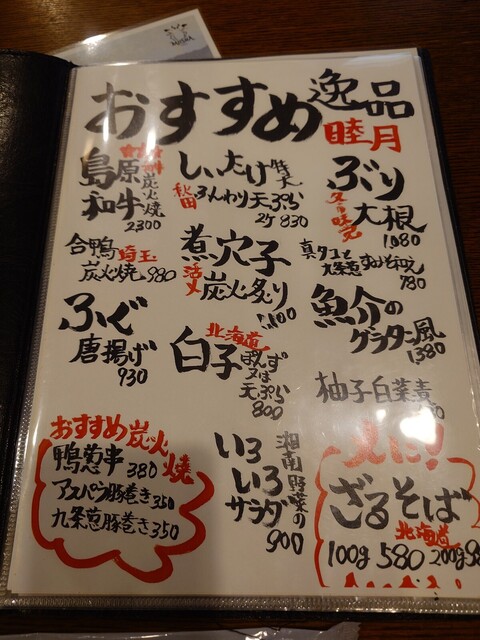 おすすめ逸品
睦月
島原
和牛
炭火焼
2300
しいたけ特大
秋田
ふんわり天ぷら
2ケ830
ぶり
大根
1,080
合鴨
埼玉
炭火焼 980
煮穴子
活〆
炭火炙り
1,100
真タコと
780
ふぐ
唐揚げ
930
北海道
白子
ぽんず
又は
天ぷら
800
魚介の
グラタン風
1,380
柚子白菜
おすすめ炭火焼
鴨葱串 380
アスパラ豚巻き350
九条葱豚巻き350
湘南野菜の
いろ
いろ
サラダ
900
ざるそば
北海道
100g 580 200g 98